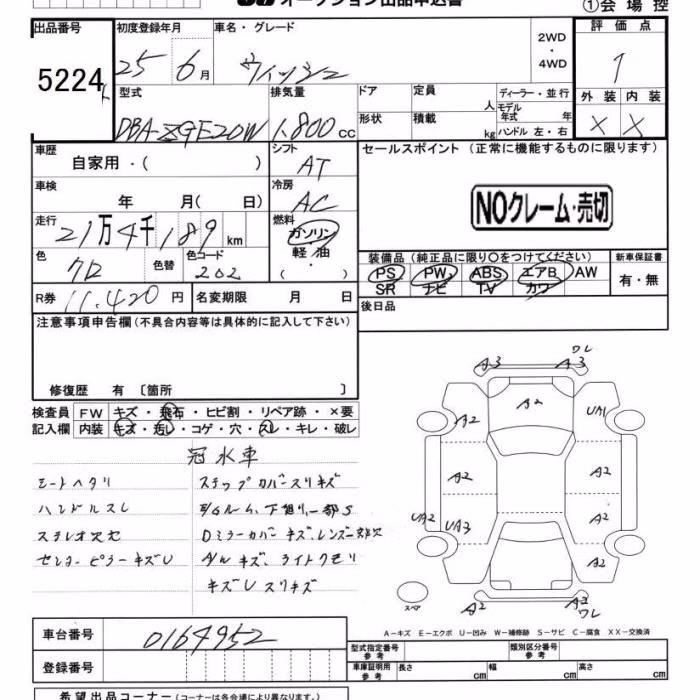 オークション出品申込書
①会場控
出品番号
5224
初度登録年月
25年6月
車名・グレード
ウィッシュ
2WD
・
4WD
評価点
1
外装 内装
× ×
型式
DBA-ZGE20W
排気量
1,800cc
ドア
定員
人
ディーラー・並行
モデル年式 年
形状
積載
kg
ハンドル 左・右
車歴
自家用・( )
シフト
AT
セールスポイント (正常に機能するものに限ります)
NOクレーム・売切
車検
年 月( 日)
冷房
AC
走行
21万4千189km
燃料
ガソリン
軽・油
・( )
色
クロ
色替
色コード
202
装備品 (純正品に限り○をつけてください)
PS PW ABS エアB AW
SR ナビ TV カワ
新車保証書
有・無
R券 11,420円
名変期限 月 日
後日品
注意事項申告欄(不具合内容等は具体的に記入して下さい)
修復歴 有 〔箇所 〕
検査員記入欄
FW キズ・飛石・ヒビ割・リペア跡・×要
内装 キズ・汚レ・コゲ・穴・スレ・キレ・破レ
冠水車
シートヘタリ
ステップカバースリキズ
ハンドルスレ
下廻リ一部S
ステレオ欠セ
Dミラーカバーキズ、レンズ一部欠
センターピラーキズU
キズ、ライトクモリ
キズUスリキズ
A3 A3 ワレ
A2 A2 UA1
A2 A2
UA2 UA3 A2
A2
A2 A2 ワレ
スペア
A-キズ E-エクボ U-凹み W-補修跡 S-サビ C-腐食 XX-交換済
車台番号
0164952
登録番号
型式指定番号 参考
類別区分番号 参考
車庫証明用 参考
長さ cm
幅 cm
高さ cm
希望出品コーナー (コーナーは各会場により異なります。)